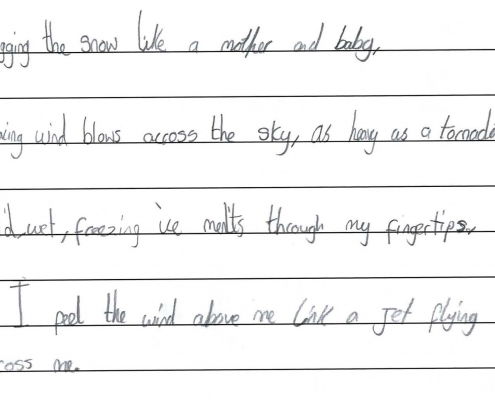 gging the snow like a mother and baby,
wind blows across the sky, as heavy as a tornado
wet, freezing ice melts through my fingertips,
I feel the wind above me like a jet flying
ross me.